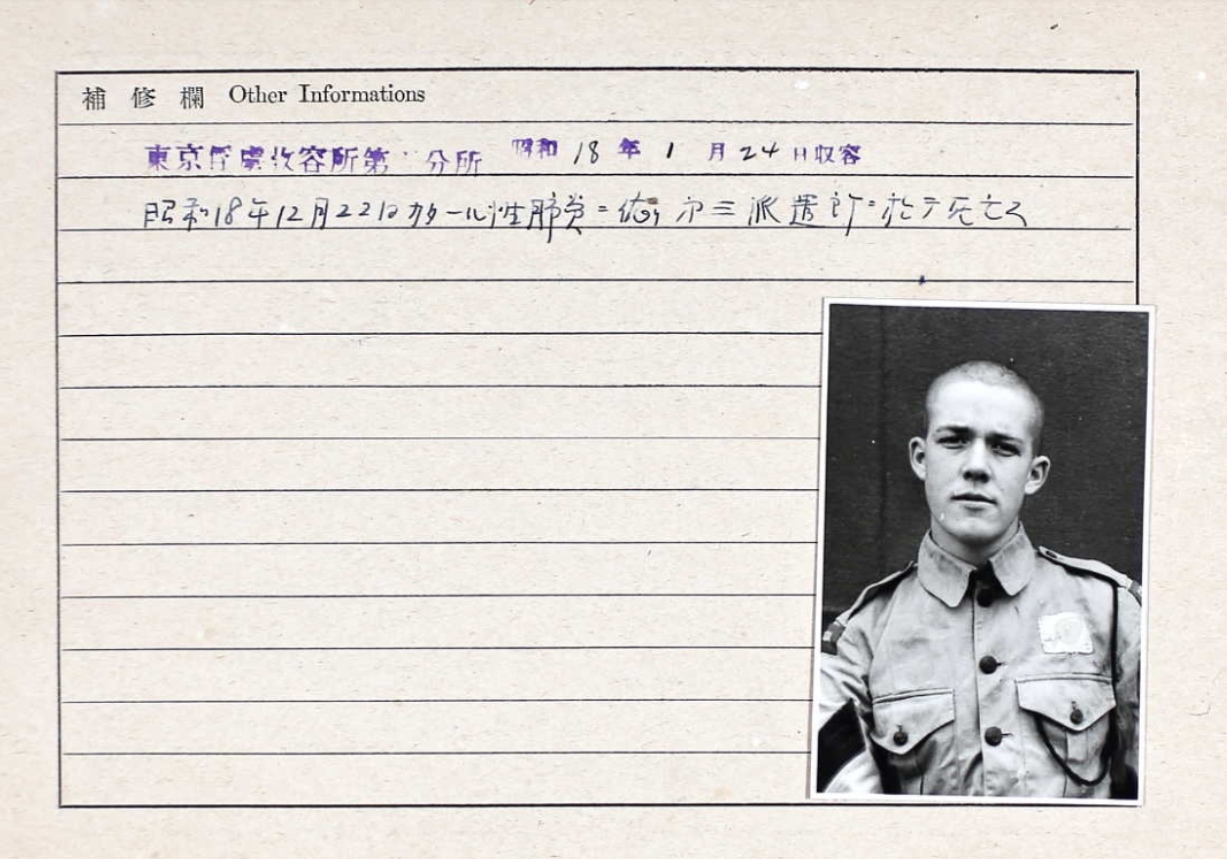 補修欄 Other Informations
東京俘虜收容所第 分所 昭和 18 年 1 月 24 日收容
昭和18年12月22日カタール性肺炎ニ依リ 第三派遣所ニ於テ死亡ス